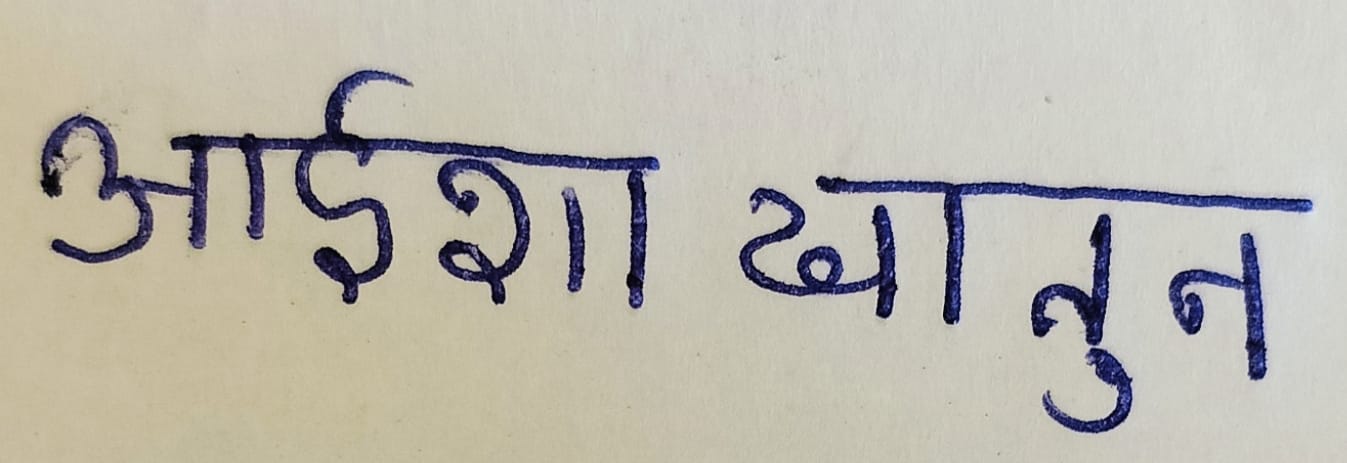 आईशा खातुन